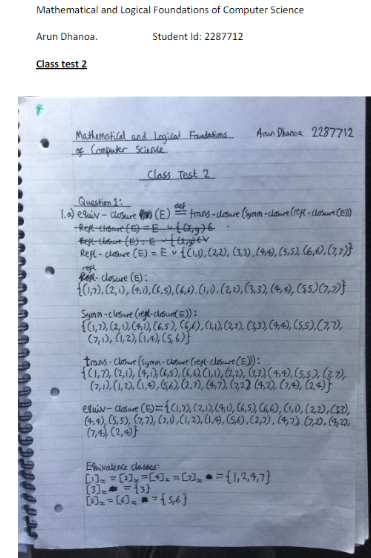 Mathematical and Logical Foundations of Computer Science
Arun Dhanoa. Student Id: 2287712
Class test 2
Mathematical and Logical Foundations Arun Dhanoa 2287712
of Computer Science
Class Test 2
Question 1:
1.a) equiv-closure (E) def= trans-closure (symm-closure (refl-closure (E)))
Refl-closure (E) = E ∪ {
Refl-closure (E) = E ∪ {(x,y) ∈ V
Refl-closure (E) = E ∪ {(1,1), (2,2), (3,3), (4,4), (5,5), (6,6), (7,7)}
refl-closure (E):
{(1,7), (2,1), (4,1), (6,5), (6,6), (1,1), (2,2), (3,3), (4,4), (5,5), (7,7)}
Symm-closure (refl-closure(E)):
{(1,7), (2,1), (4,1), (6,5), (6,6), (1,1), (2,2), (3,3), (4,4), (5,5), (7,7),
(7,1), (1,2), (1,4), (5,6)}
trans-closure (symm-closure (refl-closure(E))):
{(1,7), (2,1), (4,1), (6,5), (6,6), (1,1), (2,2), (3,3), (4,4), (5,5), (7,7),
(7,1), (1,2), (1,4), (5,6), (2,7), (4,7), (7,2), (4,2), (7,4), (2,4)}
equiv-closure (E) = {(1,7), (2,1), (4,1), (6,5), (6,6), (1,1), (2,2), (3,3),
(4,4), (5,5), (7,7), (7,1), (1,2), (1,4), (5,6), (2,7), (4,7), (7,2), (4,2),
(7,4), (2,4)}
Equivalence classes:
[1]≈ = [2]≈ = [4]≈ = [7]≈ = {1,2,4,7}
[3]≈ = {3}
[5]≈ = [6]≈ = {5,6}